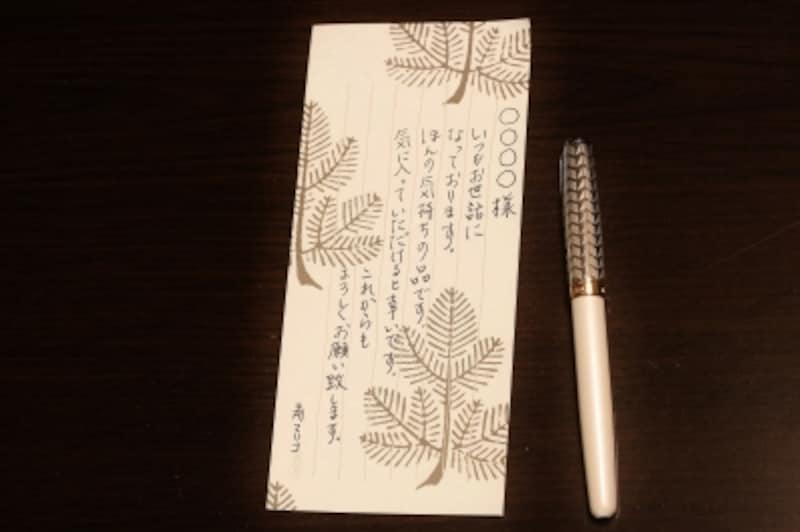 ○○○○様
いつもお世話に
なっております。
ほんの気持ちの品です。
気に入っていただけると幸いです。
これからも
よろしくお願い致します。
マリコ